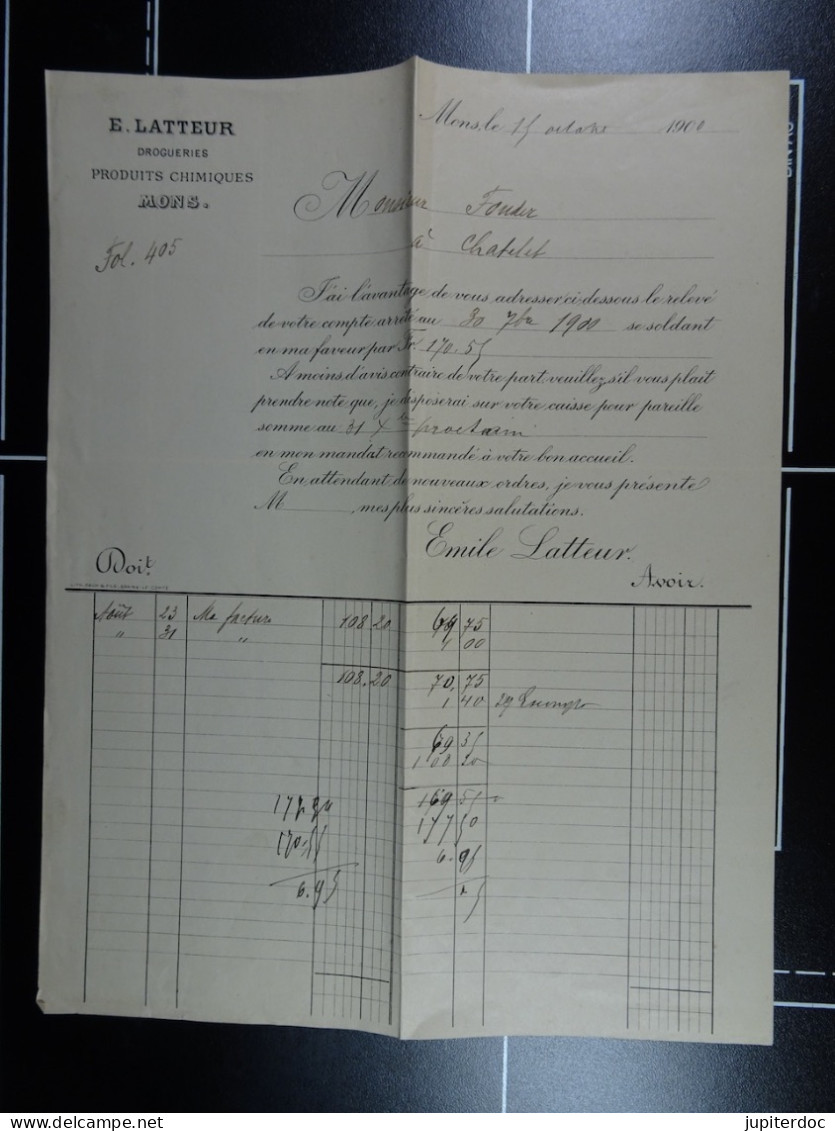 E. LATTEUR
DROGUERIES
PRODUITS CHIMIQUES
MONS.
Mons, le 15 octobre 1900
Fol. 405
Monsieur Fonder
à Chatelet
J'ai l'avantage de vous adresser ci-dessous le relevé
de votre compte arrêté au 30 7bre 1900 se soldant
en ma faveur par Fr. 170.55
A moins d'avis contraire de votre part, veuillez s'il vous plait
prendre note que, je disposerai sur votre caisse pour pareille
somme au 31 Xbre prochain
en mon mandat recommandé à votre bon accueil.
En attendant de nouveaux ordres, je vous présente
M , mes plus sincères salutations.
Emile Latteur.
Doit. Avoir.
Août 23 Ma facture 108 20 75
" 31 " 00
108.20 70.75
1 40 29
69 35
100 20
169 55
177 50
170.55 6.95
6.95
jupiterdoc